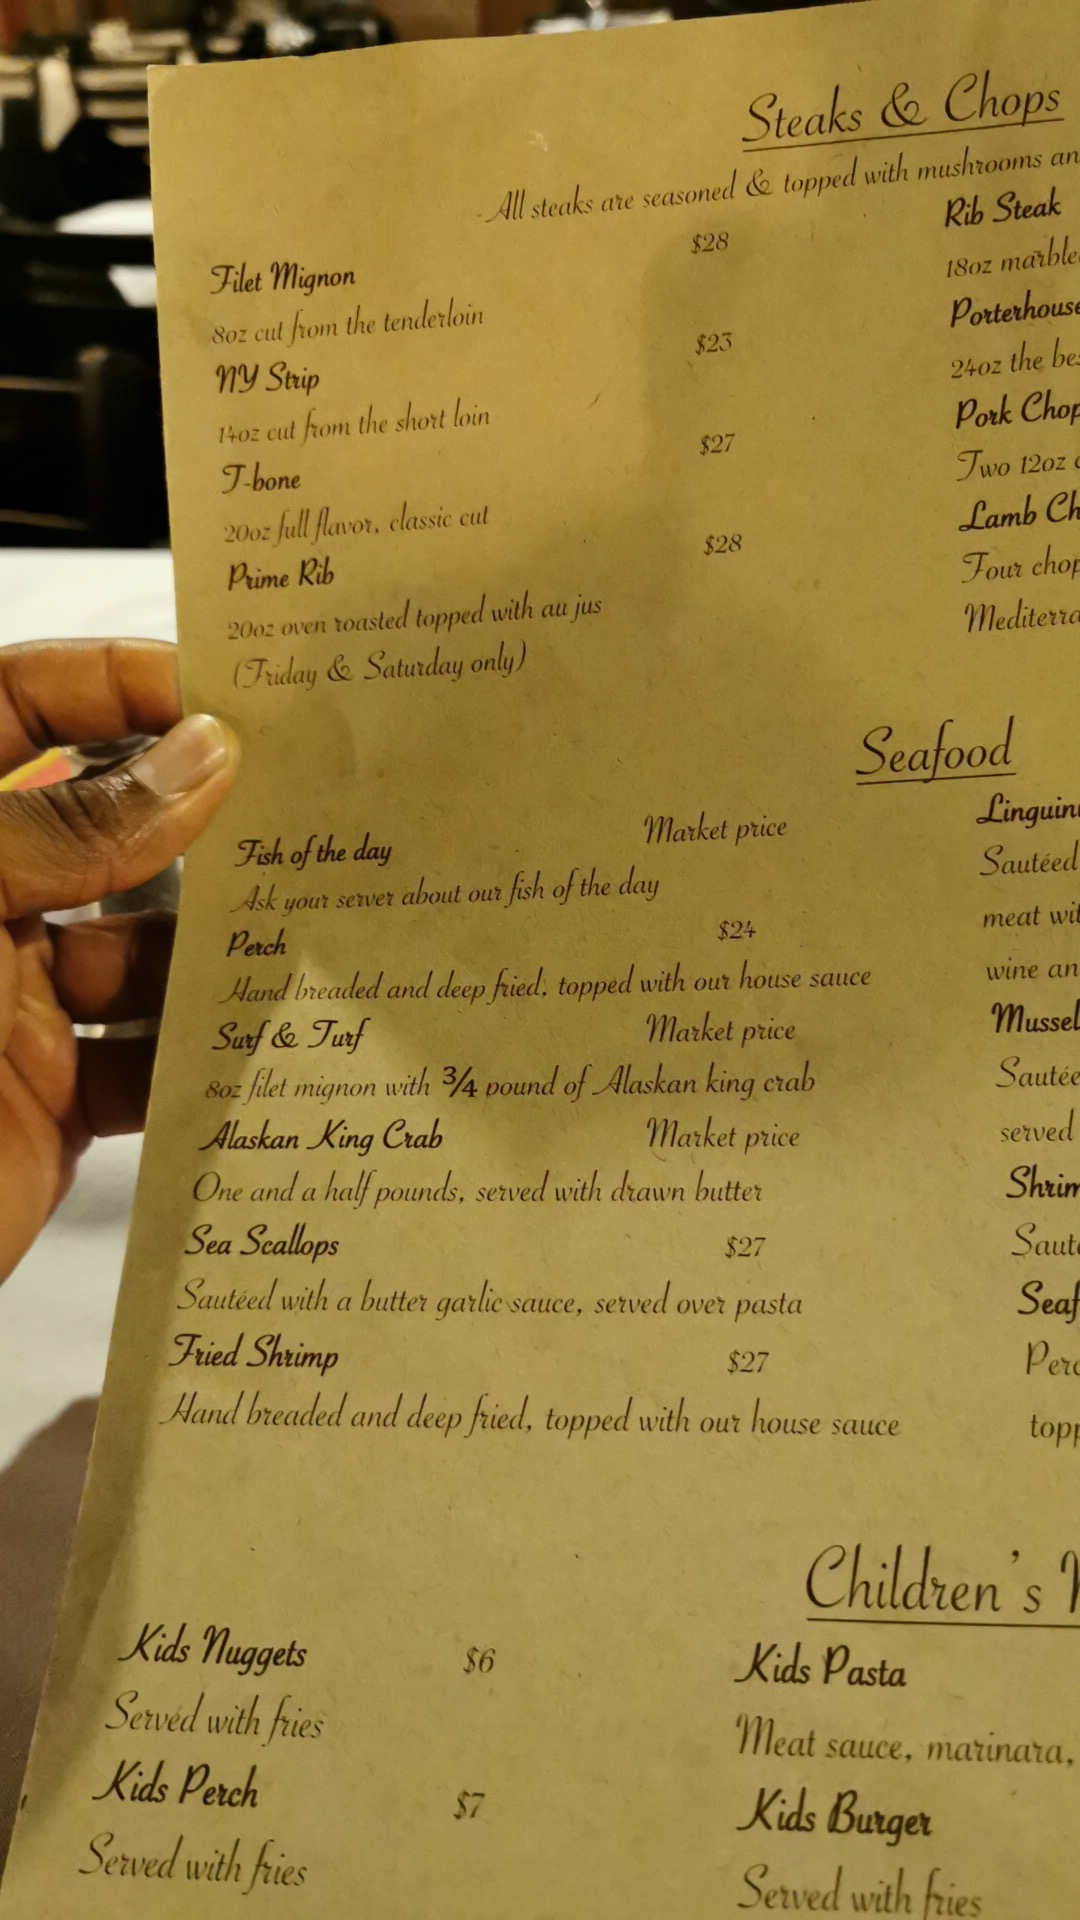 Steaks & Chops
All steaks are seasoned & topped with mushrooms an
Filet Mignon $28
8oz cut from the tenderloin
NY Strip $23
14oz cut from the short loin
T-bone $27
20oz full flavor, classic cut
Prime Rib $28
20oz oven roasted topped with au jus
(Friday & Saturday only)
Rib Steak
18oz marble
Porterhouse
24oz the bes
Pork Chop
Two 12oz c
Lamb Ch
Four chop
Mediterra
Seafood
Fish of the day Market price
Ask your server about our fish of the day
Perch $24
Hand breaded and deep fried, topped with our house sauce
Surf & Turf Market price
8oz filet mignon with ¾ pound of Alaskan king crab
Alaskan King Crab Market price
One and a half pounds, served with drawn butter
Sea Scallops $27
Sautéed with a butter garlic sauce, served over pasta
Fried Shrimp $27
Hand breaded and deep fried, topped with our house sauce
Linguin
Sautéed
meat wit
wine an
Mussel
Sautée
served
Shrim
Saute
Seaf
Perc
topp
Children's
Kids Nuggets $6
Served with fries
Kids Perch $7
Served with fries
Kids Pasta
Meat sauce, marinara,
Kids Burger
Served with fries